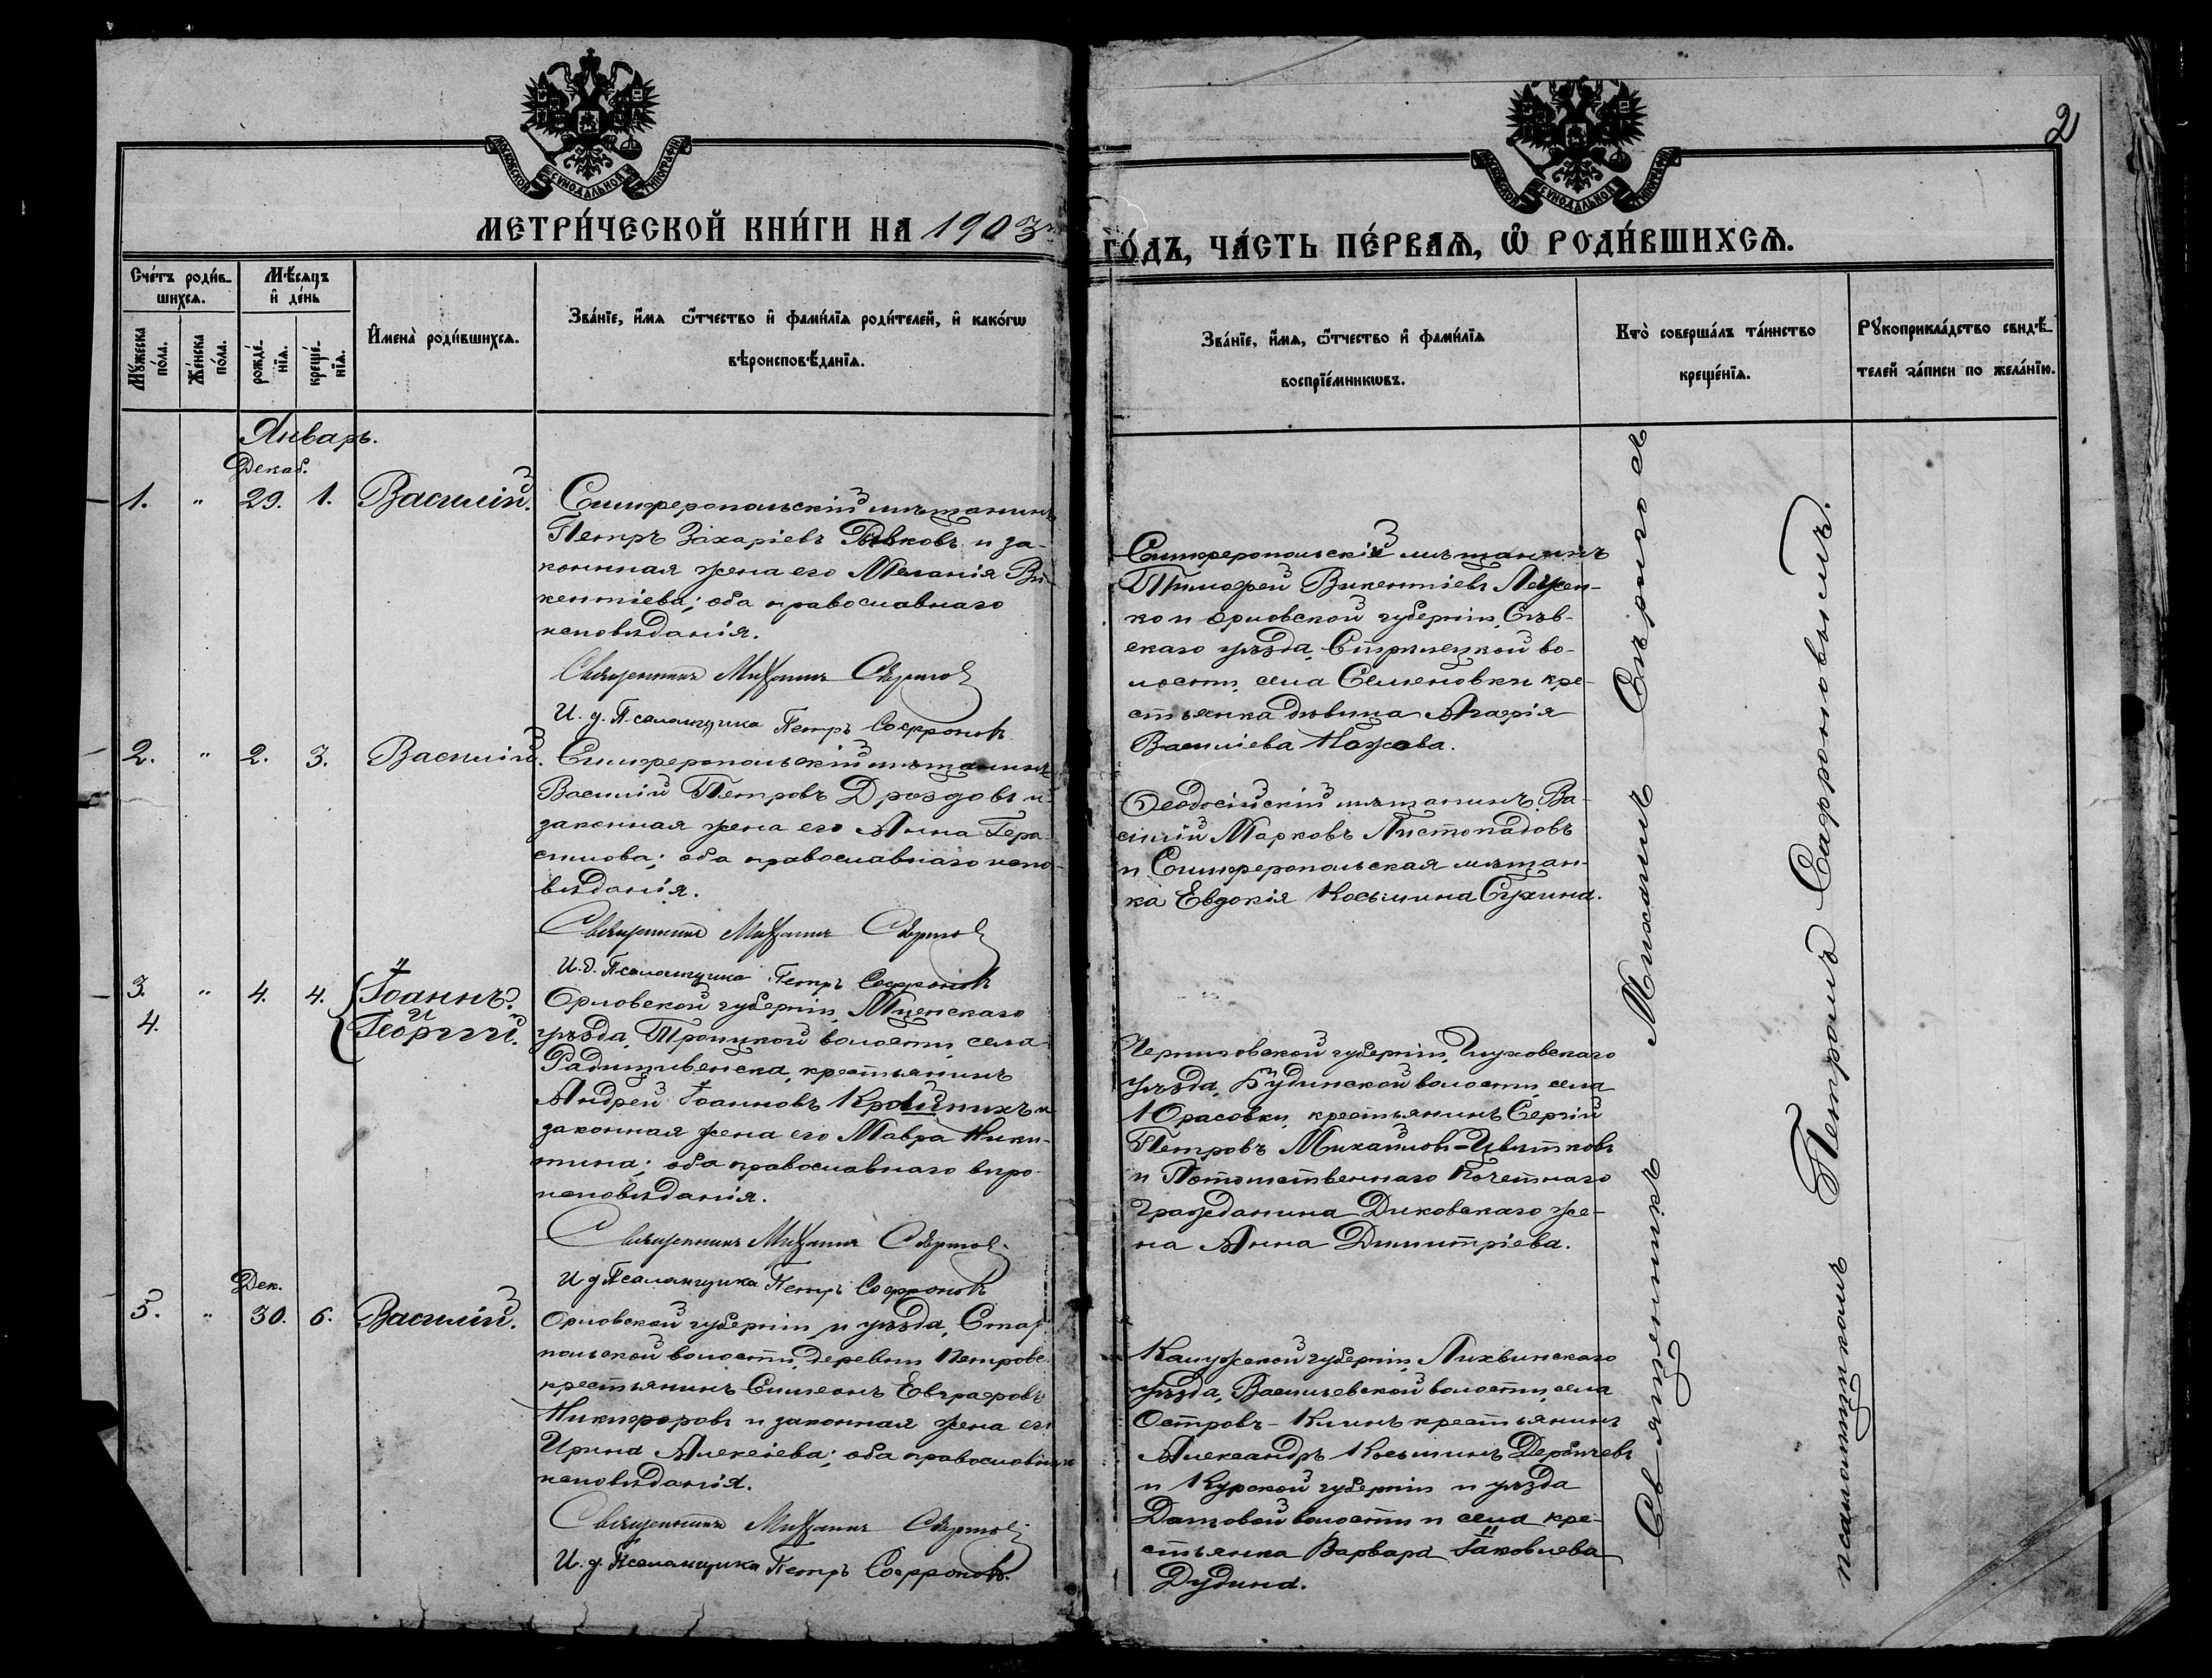 2
МОСКОВСКОЙ СѴНОДАЛЬНОЙ ТИПОГРАФІИ
МОСКОВСКОЙ СѴНОДАЛЬНОЙ ТИПОГРАФІИ
МЕТРИ́ЧЕСКОЙ КНИ́ГИ НА 1903 г.
ГО́ДЪ, ЧА́СТЬ ПЕ́РВАѦ, Ѡ҆ РОДИ́ВШИХСѦ.
Сче́тъ роди́в-
шихсѧ.
Мꙋ́жеска по́ла.
Же́нска по́ла.
Мѣ́сѧцъ
и҆ де́нь
рожде́-
нїѧ.
креще́-
нїѧ.
И҆мена̀ роди́вшихсѧ.
Зва́нїе, и҆́мѧ ѻ҆́тчество и҆ фами́лїѧ роди́телей, и҆ како́гѡ
вѣроисповѣ́данїѧ.
Зва́нїе, и҆́мѧ, ѻ҆́тчество и҆ фами́лїѧ
воспрїе́мникѡвъ.
Кто̀ соверша́лъ та́инство
креще́нїѧ.
Рꙋкоприкла́дство свидѣ́-
телей за́писи по жела́нїю.
Январь.
Декаб.
1. " 29. 1. Василій.
Симферопольскій мѣщанинъ
Петръ Захаріевъ и за-
конная жена его Меланія Ви-
кентіева; оба православнаго
исповѣданія.
Священникъ Михаилъ
И. д. Псаломщика Петръ Софроновъ
Симферопольскій мѣщанинъ
Тимофей Викентіевъ
ко и Орловской губерніи, Сѣв-
скаго уѣзда, Стрѣлецкой во-
лости, села Семеновки кре-
стьянка дѣвица Агафія
Василіева
2. " 2. 3. Василій.
Симферопольскій мѣщанинъ
Василій Петровъ Дроздовъ и
законная жена его Анна Гера-
симова; оба православнаго испо-
вѣданія.
Священникъ Михаилъ
И. д. Псаломщика Петръ Софроновъ
Ѳеодосійскій мѣщанинъ Ва-
силій Марковъ Листопадовъ
и Симферопольская мѣщан-
ка Евдокія Косьмина Сухина.
3. " 4. 4. Іоаннъ
4. и Георгій.
Орловской губерніи, Мценскаго
уѣзда, Троицкой волости, села
крестьянинъ
Андрей Іоанновъ и
законная жена его Мавра Ники-
тина; оба православнаго вѣро-
исповѣданія.
Священникъ Михаилъ
И д Псаломщика Петръ Софроновъ
Черниговской губерніи, Глуховскаго
уѣзда, волости, села
Юрасовки, крестьянинъ Сергій
Петровъ Михайловъ-Цвѣтковъ
и Потомственнаго Почетнаго
Гражданина Диковскаго же-
на Анна Димитріева.
Дек.
5. " 30. 6. Василій.
Орловской губерніи и уѣзда,
польской волости, деревни
крестьянинъ Симеонъ Евграфовъ
Никифоровъ и законная жена его
Ирина Алексіева; оба православнаго
исповѣданія.
Священникъ Михаилъ
И. д. Псаломщика Петръ Софроновъ.
Калужской губерніи, Лихвинскаго
уѣзда, Васильевской волости, села
Островъ-Клинъ крестьянинъ
Александръ Косьминъ
и Курской губерніи и уѣзда
волости и села кре-
стьянка Варвара Іаковлева
Дудина.
Священникъ Михаилъ
псаломщикомъ Петромъ Софроновымъ.